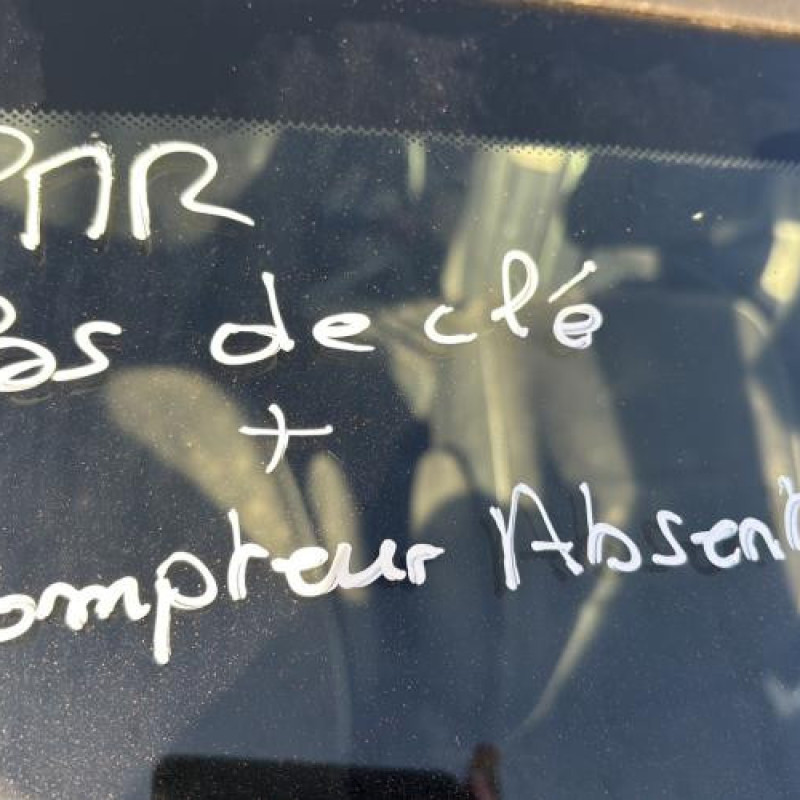 PMR
Pas de clé
+
Compteur Absent